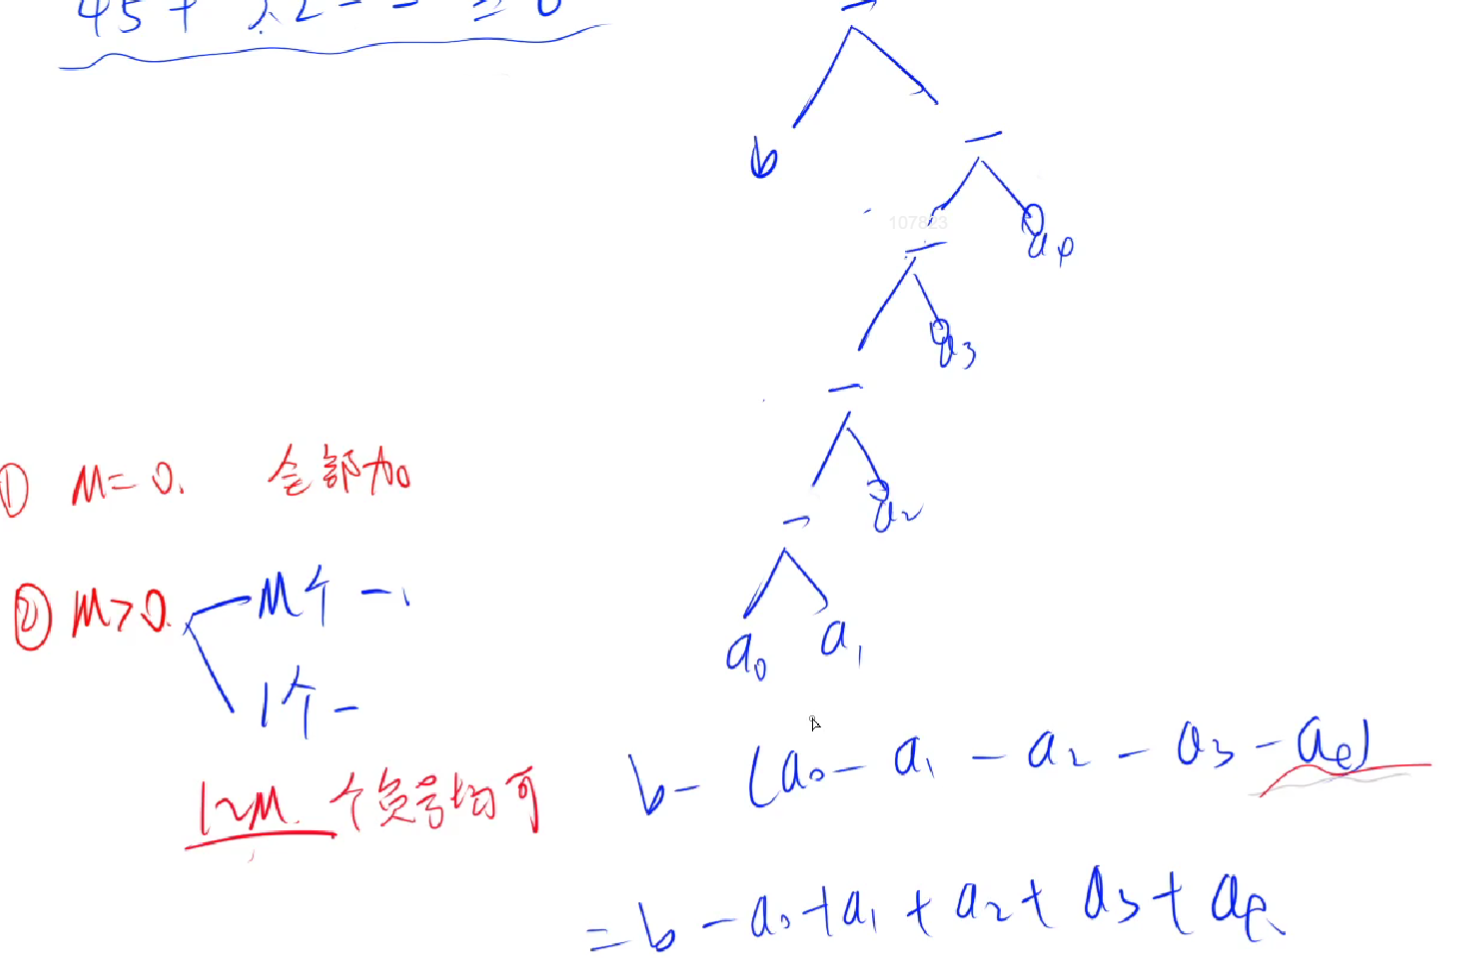 b
a₄
107823
a₃
a₂
a₀ a₁
① M=0. 全部加
② M>0. M个 -
1个 -
1~M 个负号均可
b - (a₀ - a₁ - a₂ - a₃ - a₄)
= b - a₀ + a₁ + a₂ + a₃ + a₄